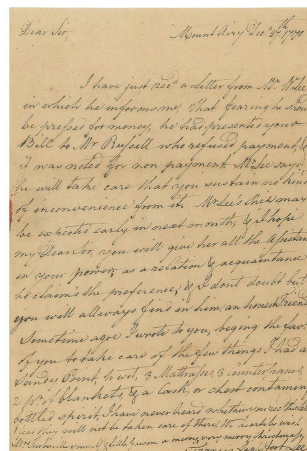 Mount Airy Decr 27th 1770
Dear Sir,
I have just recd a Letter from Mr. Wm Lee
in which he informs me, that fearing he shou'd
be pressed for money, he had presented your
Bill to Mr Russell who refused payment, &
it was noted for non payment Mr Lee says
he will take care that you sustain no kind
of inconvenience from it. Mr Lee's Ship may
be expected early in next month, & I hope
my Dear Sir, you will give her all the assistance
in your power, as a relation & acquaintance
he claims the preference, & I dont doubt but
you will allways find in him, an honest Friend
Sometime agoe I wrote to you, beging the favr.
of you to take care of the few things I had at
Sandy Point, to wit, 3 Mattrasses, 3 counterpanes,
2 pr of blankets, & a Cask or chest containing
bottled spirit, I have never heard whether you recd these
I fear they will not be taken care of there
a merry, very merry christmass